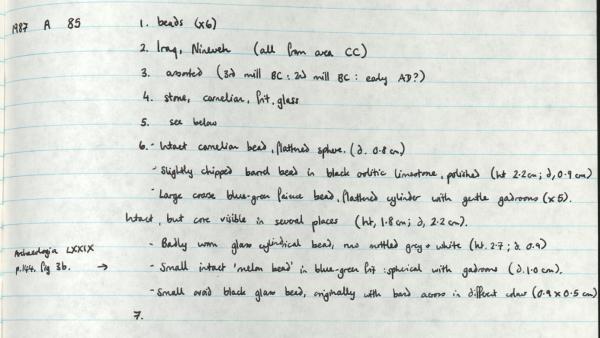 1987 A 85
1. beads (x6)
2. Iraq, Nineveh (all from area CC)
3. assorted (3rd mill BC : 2nd mill BC : early AD?)
4. stone, carnelian, frit, glass
5. see below
6. - Intact carnelian bead, flattened sphere. (d. 0.8 cm)
- Slightly chipped barrel bead in black oolitic limestone, polished (ht 2.2cm; d, 0.9 cm)
- Large coarse blue-green faience bead, flattened cylinder with gentle gadroons (x 5).
Intact, but core visible in several places (ht, 1.8cm; d, 2.2cm).
- Badly worn glass cylindrical bead, now mottled grey + white (ht. 2.7; d. 0.9)
Archaeologia LXXIX
p.144. fig 3b. →
- Small intact 'melon bead' in blue-green frit : spherical with gadroons (d. 1.0 cm).
- Small ovoid black glass bead, originally with band across in different colour (0.9 x 0.5 cm)
7.